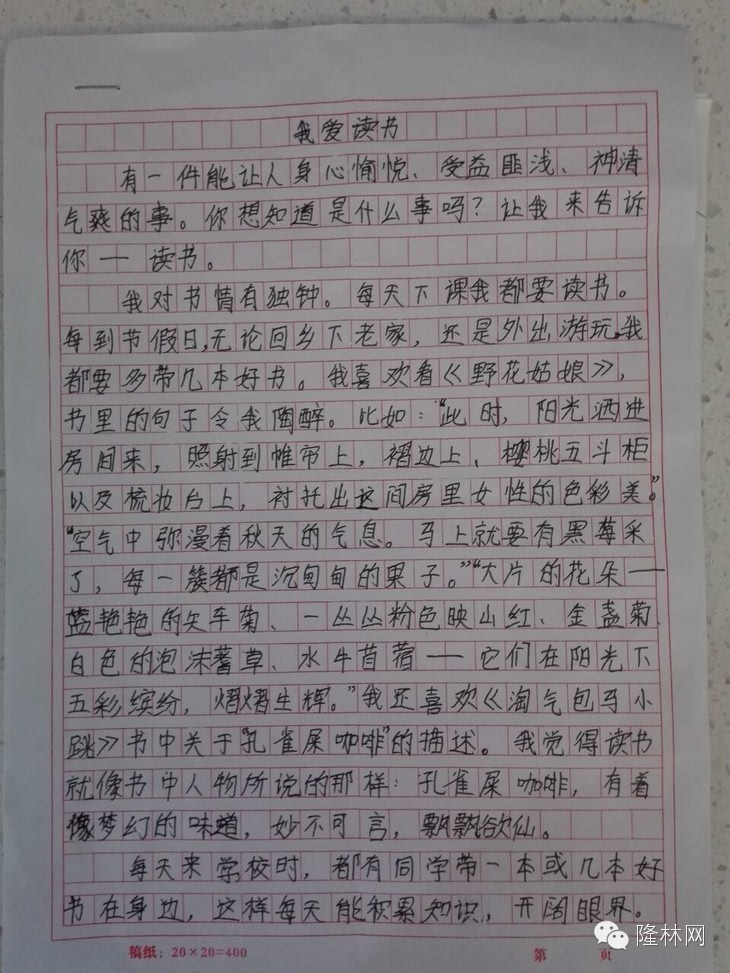 我爱读书
有一件能让人身心愉悦、受益匪浅、神清
气爽的事。你想知道是什么事吗？让我来告诉
你——读书。
我对书情有独钟。每天下课我都要读书。
每到节假日,无论回乡下老家，还是外出游玩,我
都要多带几本好书。我喜欢看《野花姑娘》，
书里的句子令我陶醉。比如：“此时，阳光洒进
房间来，照射到帷帘上，褶边上、樱桃五斗柜
以及梳妆台上，衬托出这间房里女性的色彩美。”
“空气中弥漫着秋天的气息。马上就要有黑莓采
了，每一簇都是沉甸甸的果子。”“大片的花朵——
蓝艳艳的矢车菊、一丛丛粉色映山红、金盏菊、
白色的泡沫蓍草、水牛苜蓿——它们在阳光下
五彩缤纷，熠熠生辉。”我还喜欢《淘气包马小
跳》书中关于“孔雀屎咖啡”的描述。我觉得读书
就像书中人物所说的那样：孔雀屎咖啡，有着
像梦幻的味道，妙不可言，飘飘欲仙。
每天来学校时，都有同学带一本或几本好
书在身边，这样每天能积累知识，开阔眼界。
稿纸：20×20=400
第 页
隆林网